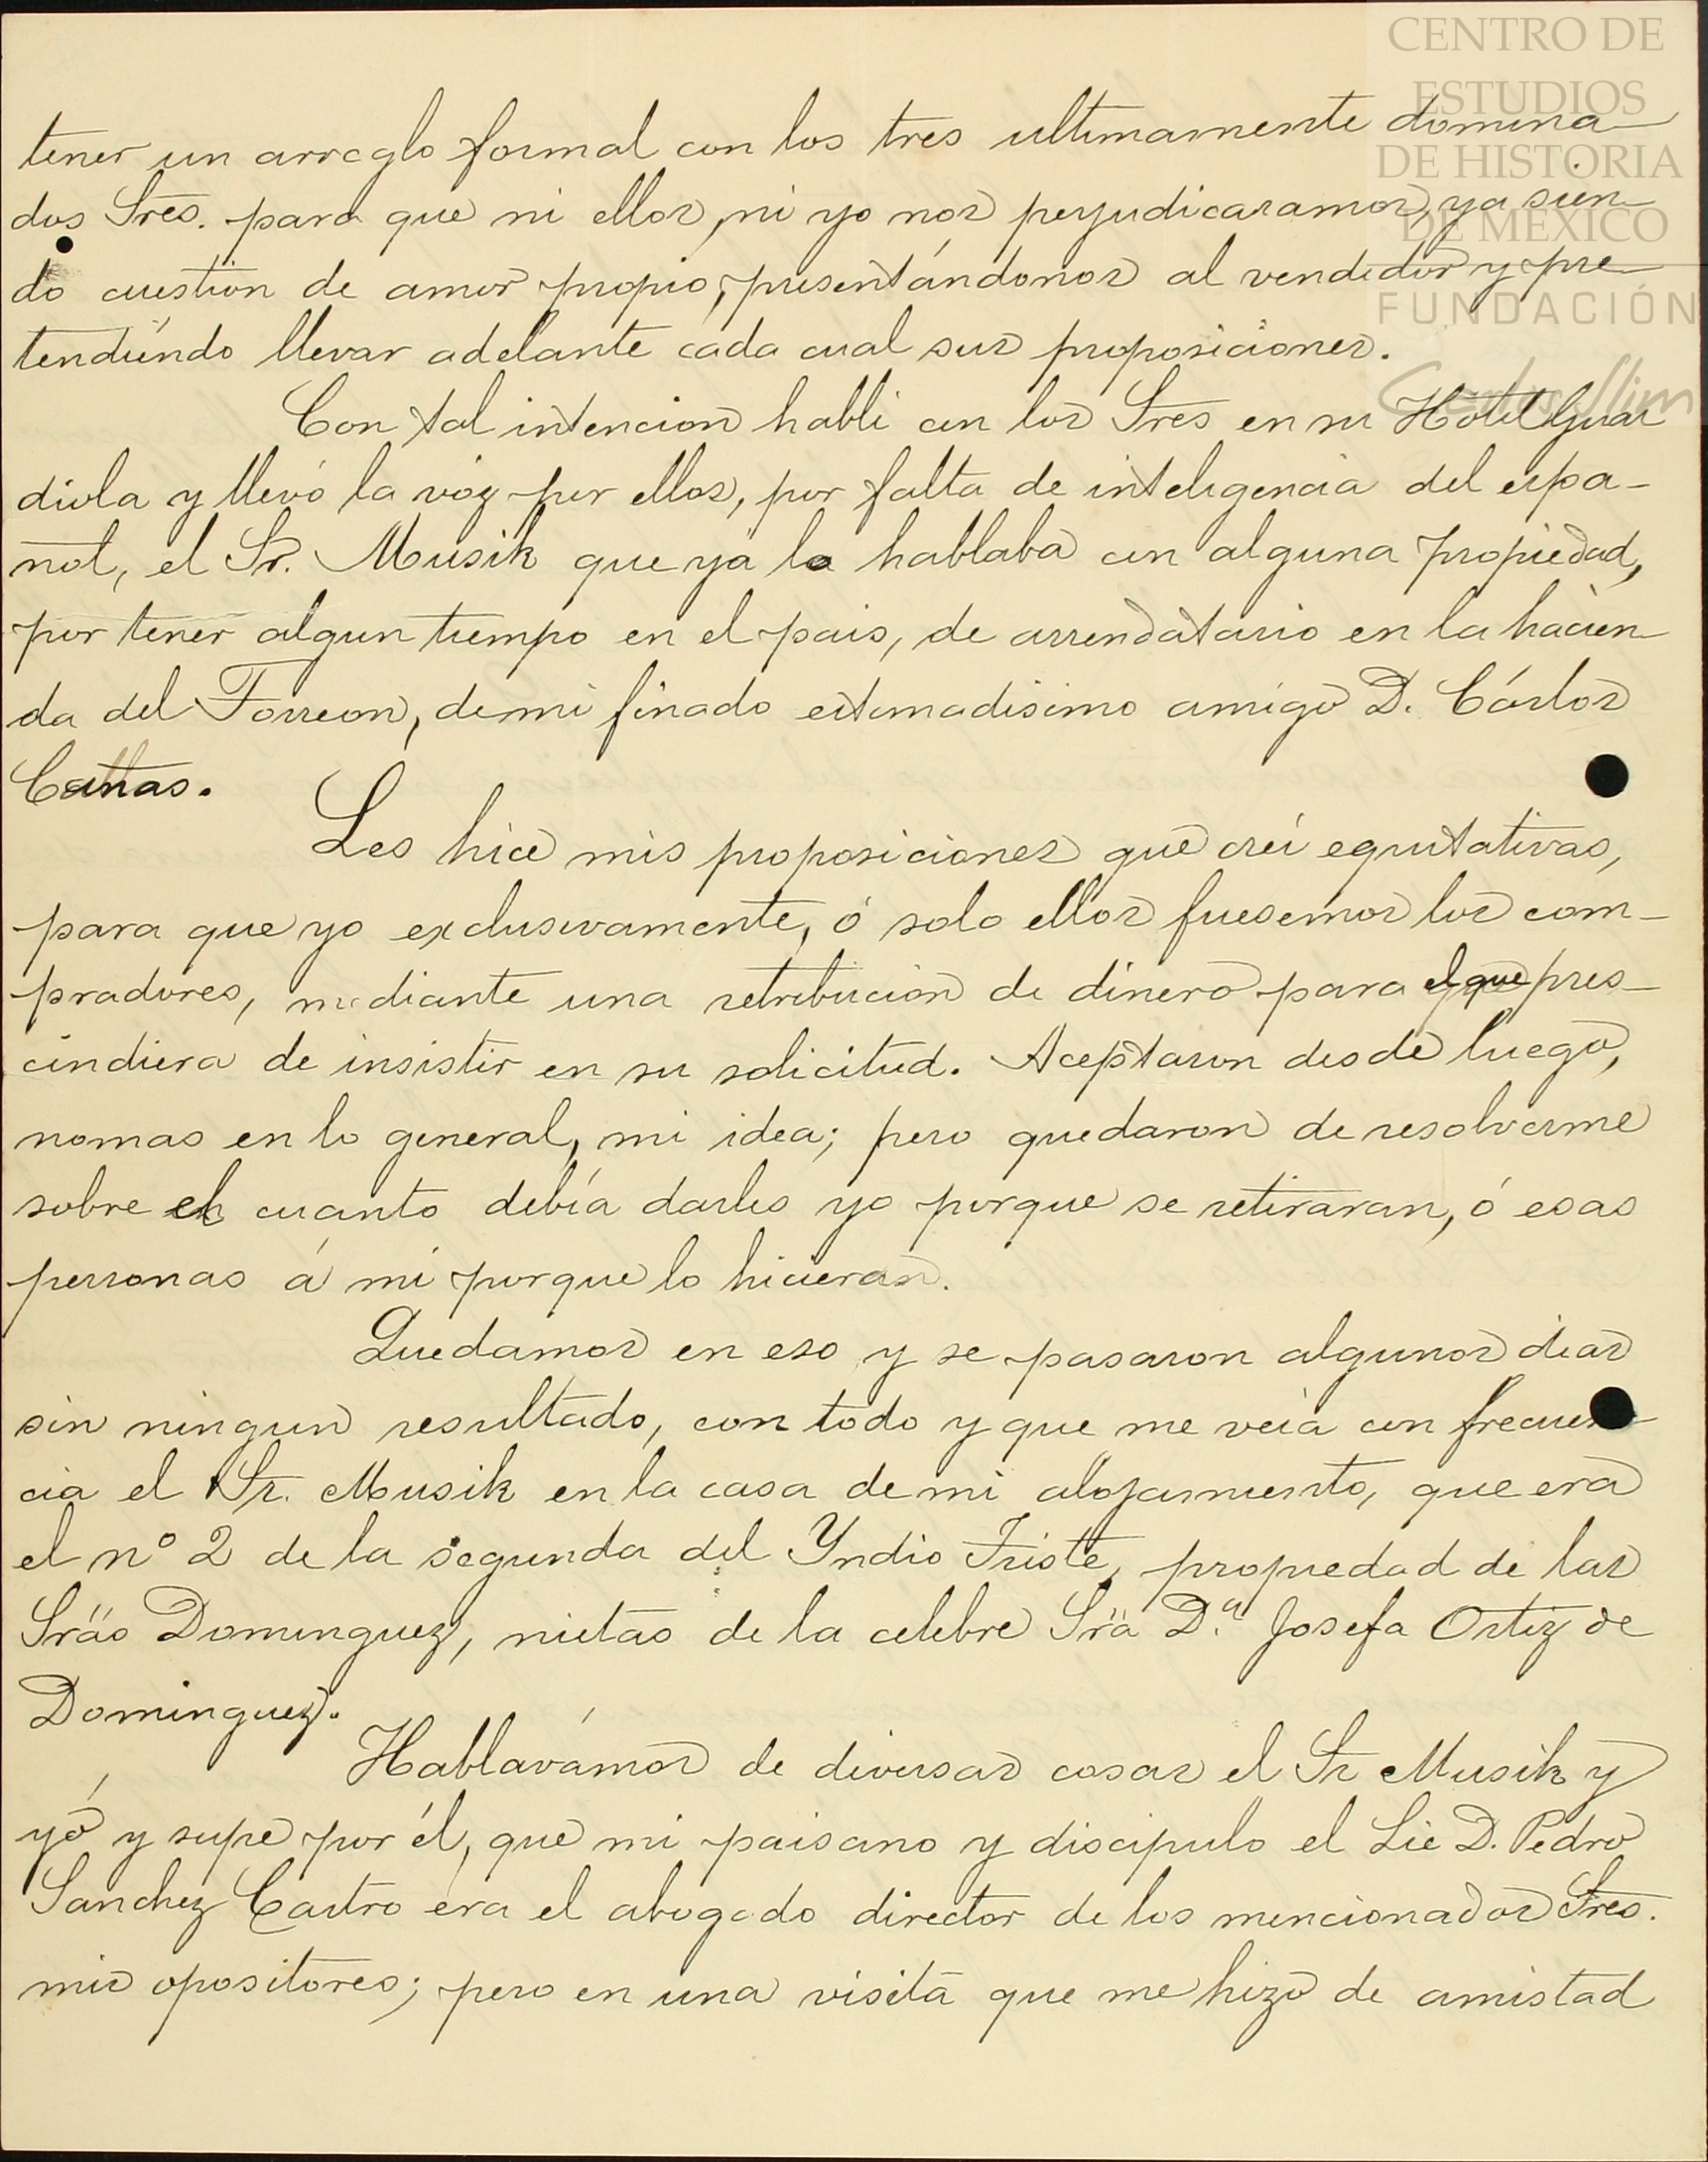 CENTRO DE
ESTUDIOS
DE HISTORIA
DE MÉXICO
FUNDACIÓN
Carlos Slim
tener un arreglo formal con los tres ultimamente domina
dos Sres. para que ni ellos, ni yo nos perjudicaramos, ya sien
do cuestion de amor propio, presentándonos al vendedor y pre
tendiéndo llevar adelante cada cual sus proposiciones.
Con tal intencion hablé con los Sres en su Hotel Guar
diola y llevó la vóz por ellos, por falta de inteligencia del espa-
ñol, el Sr. Musik que ya lo hablaba con alguna propiedad,
por tener algun tiempo en el pais, de arrendatario en la hacien
da del Torreon, de mi finado estimadisimo amigo D. Cárlos
Cañas.
Les hice mis proposiciones que creí equitativas,
para que yo exclusivamente, ó solo ellos fuesemos los com-
pradores, mediante una retribucion de dinero para el que pres-
cindiera de insistir en su solicitud. Aceptaron desde luego,
nomas en lo general, mi idea; pero quedaron de resolverme
sobre el cuanto debía darles yo porque se retiraran, ó esas
personas á mi porque lo hicieran.
Quedamos en eso y se pasaron algunos dias
sin ningun resultado, con todo y que me veía con frecuen-
cia el Sr. Musik en la casa de mi alojamiento, que era
el nº 2 de la segunda del Yndio Triste, propiedad de las
Srãs Dominguez, nietas de la celebre Srã D.ª Josefa Ortiz de
Dominguez.
Hablavámos de diversas cosas el Sr Musik y
yó y supe por él, que mi paisano y discipulo el Lic D. Pedro
Sanchez Castro era el abogado director de los mencionados Sres.
mis opositores; pero en una visita que me hizo de amistad